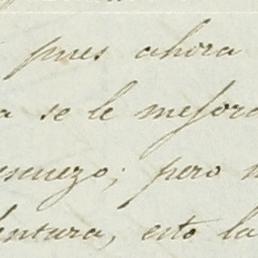 pues ahora
a se le mejora
escuezo; pero
entura, esto la